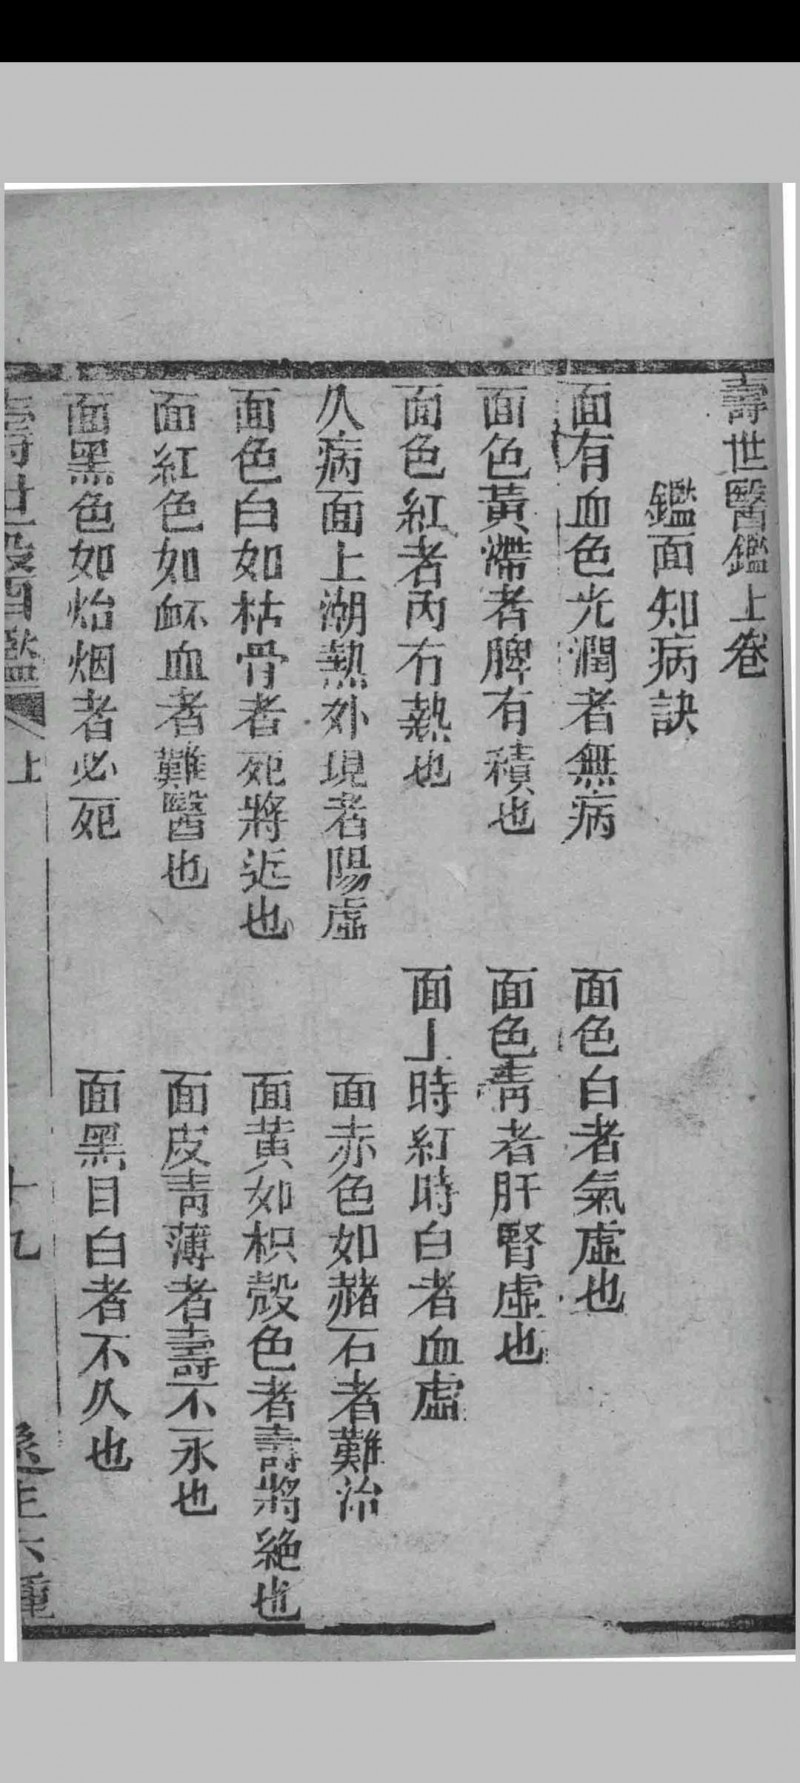 壽世醫鑑上卷
鑑面知病訣
面有血色光潤者無病
面色白者氣虛也
面色黃滯者脾有積也
面色青者肝腎虛也
面色紅者内有熱也
面上時紅時白者血虛
久病面上潮熱外現者陽虛
面赤色如赭石者難治
面色白如枯骨者死將近也
面黃如枳殼色者壽將絕也
面紅色如衃血者難醫也
面皮青薄者壽不永也
面黑色如炲烟者必死
面黑目白者不久也
壽世醫鑑
上
十九
生六種